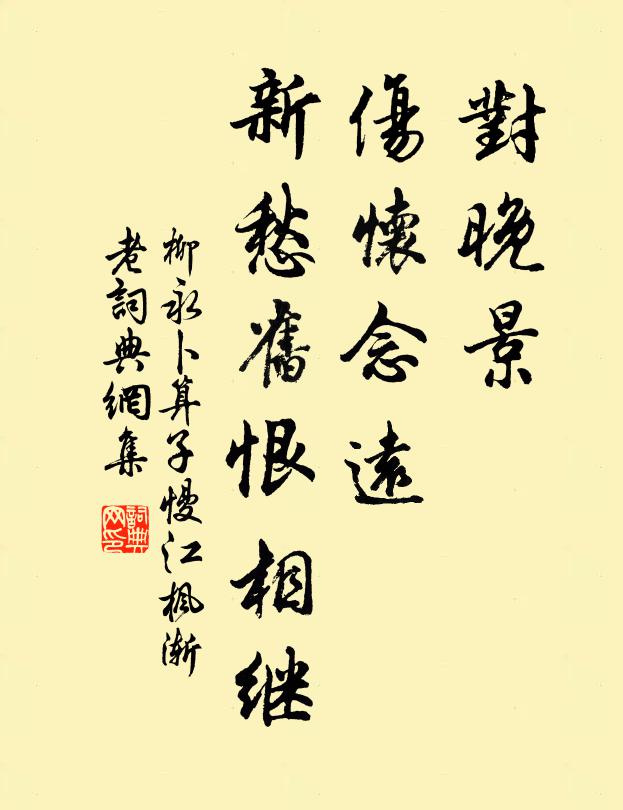 對晚景
傷懷念遠
新愁舊恨相继
柳永卜算子慢江楓漸
老詞典網集
詞典
网印